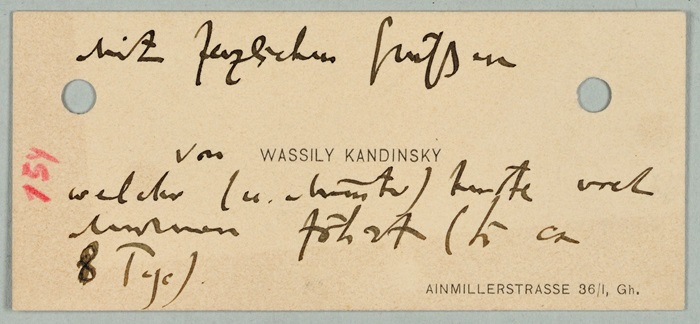 mit herzlichen Grüßen
von WASSILY KANDINSKY
welcher (u. Münter) heute nach
Murnau fährt (bis ca
8 Tage).
AINMILLERSTRASSE 36/I, Gh.
154